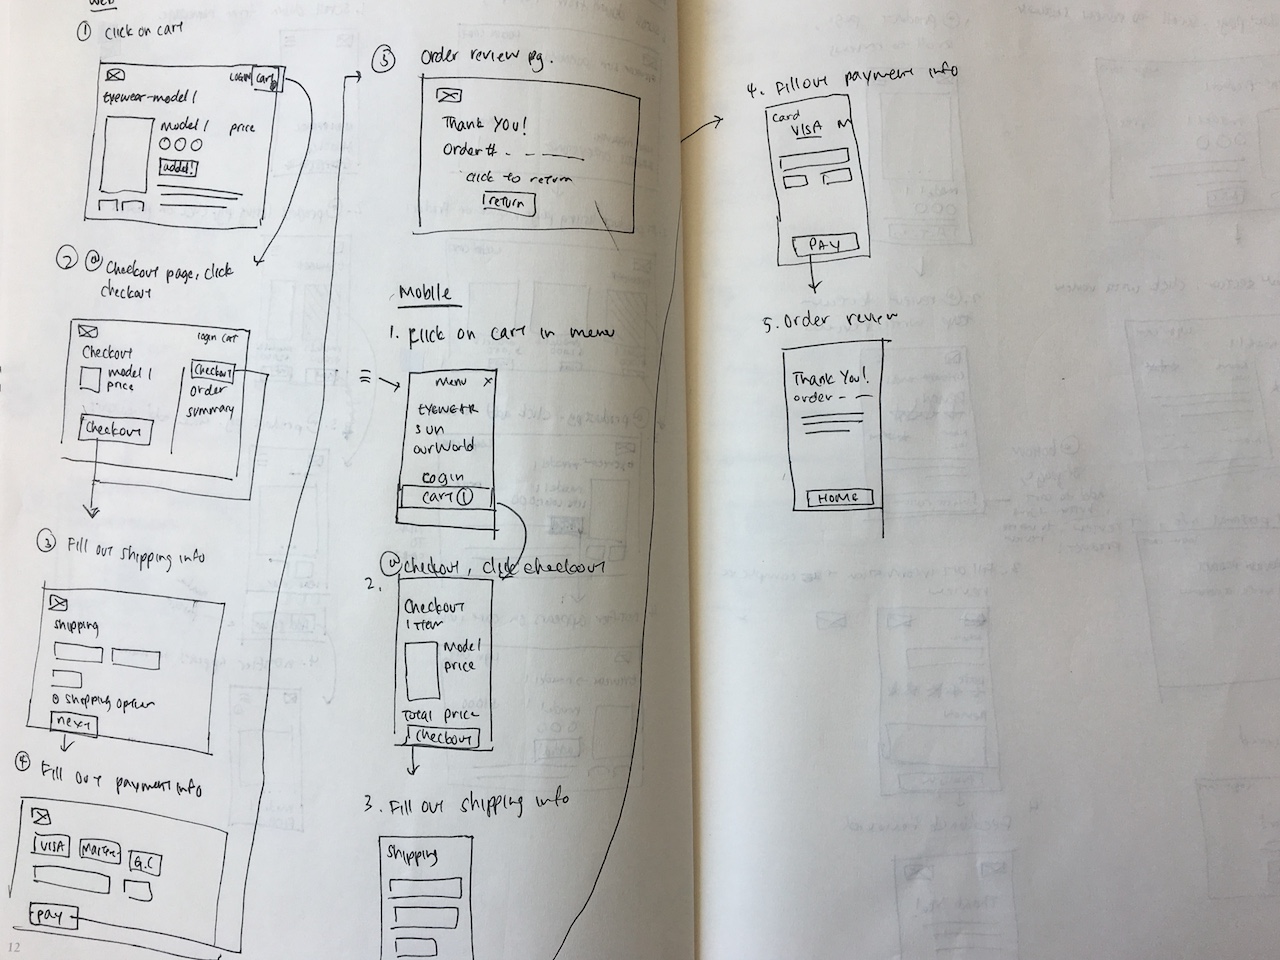 Web
① Click on cart
LOGIN Cart
Eyewear-model 1
Model 1 price
added!
② @ Checkout page, click
checkout
login cart
Checkout
model 1
price
Checkout
Checkout
order
summary
③ Fill out shipping info
shipping
shipping option
next
④ Fill out payment info
VISA Master. G.C
pay
12
⑤ Order review pg.
Thank You!
Order #
click to return
return
Mobile
1. click on cart in menu
menu X
EYEWEAR
SUN
our World
Login
cart ①
2. @ checkout, click checkout
Checkout
1 item
Model
price
Total price
Checkout
3. Fill out shipping info
Shipping
4. Fill out payment info
Card
VISA M
PAY
5. Order review
Thank You!
order - -
HOME